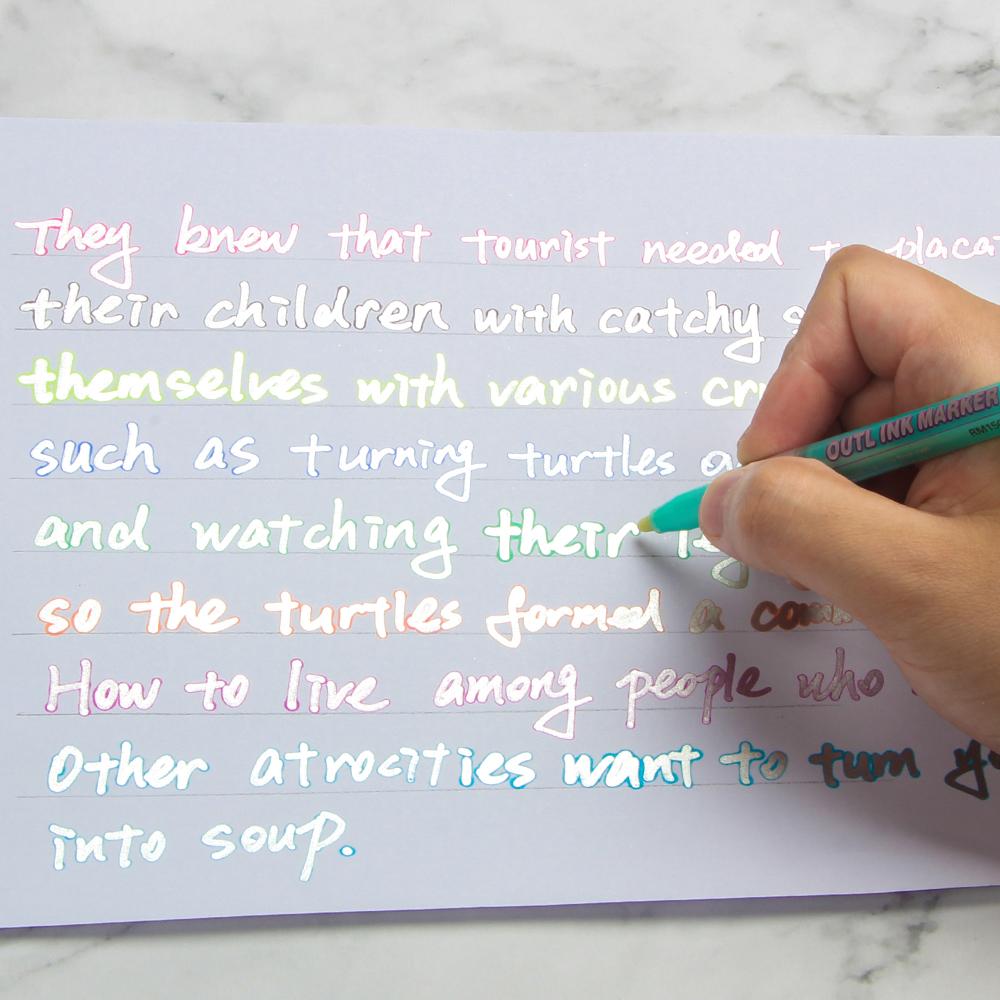 They knew that tourist needed to placat
their children with catchy s
themselves with various cr
such as turning turtles
and watching their
so the turtles formed a
How to live among people who
Other atrocities want to turn
into soup.
OUTL INK MARKER